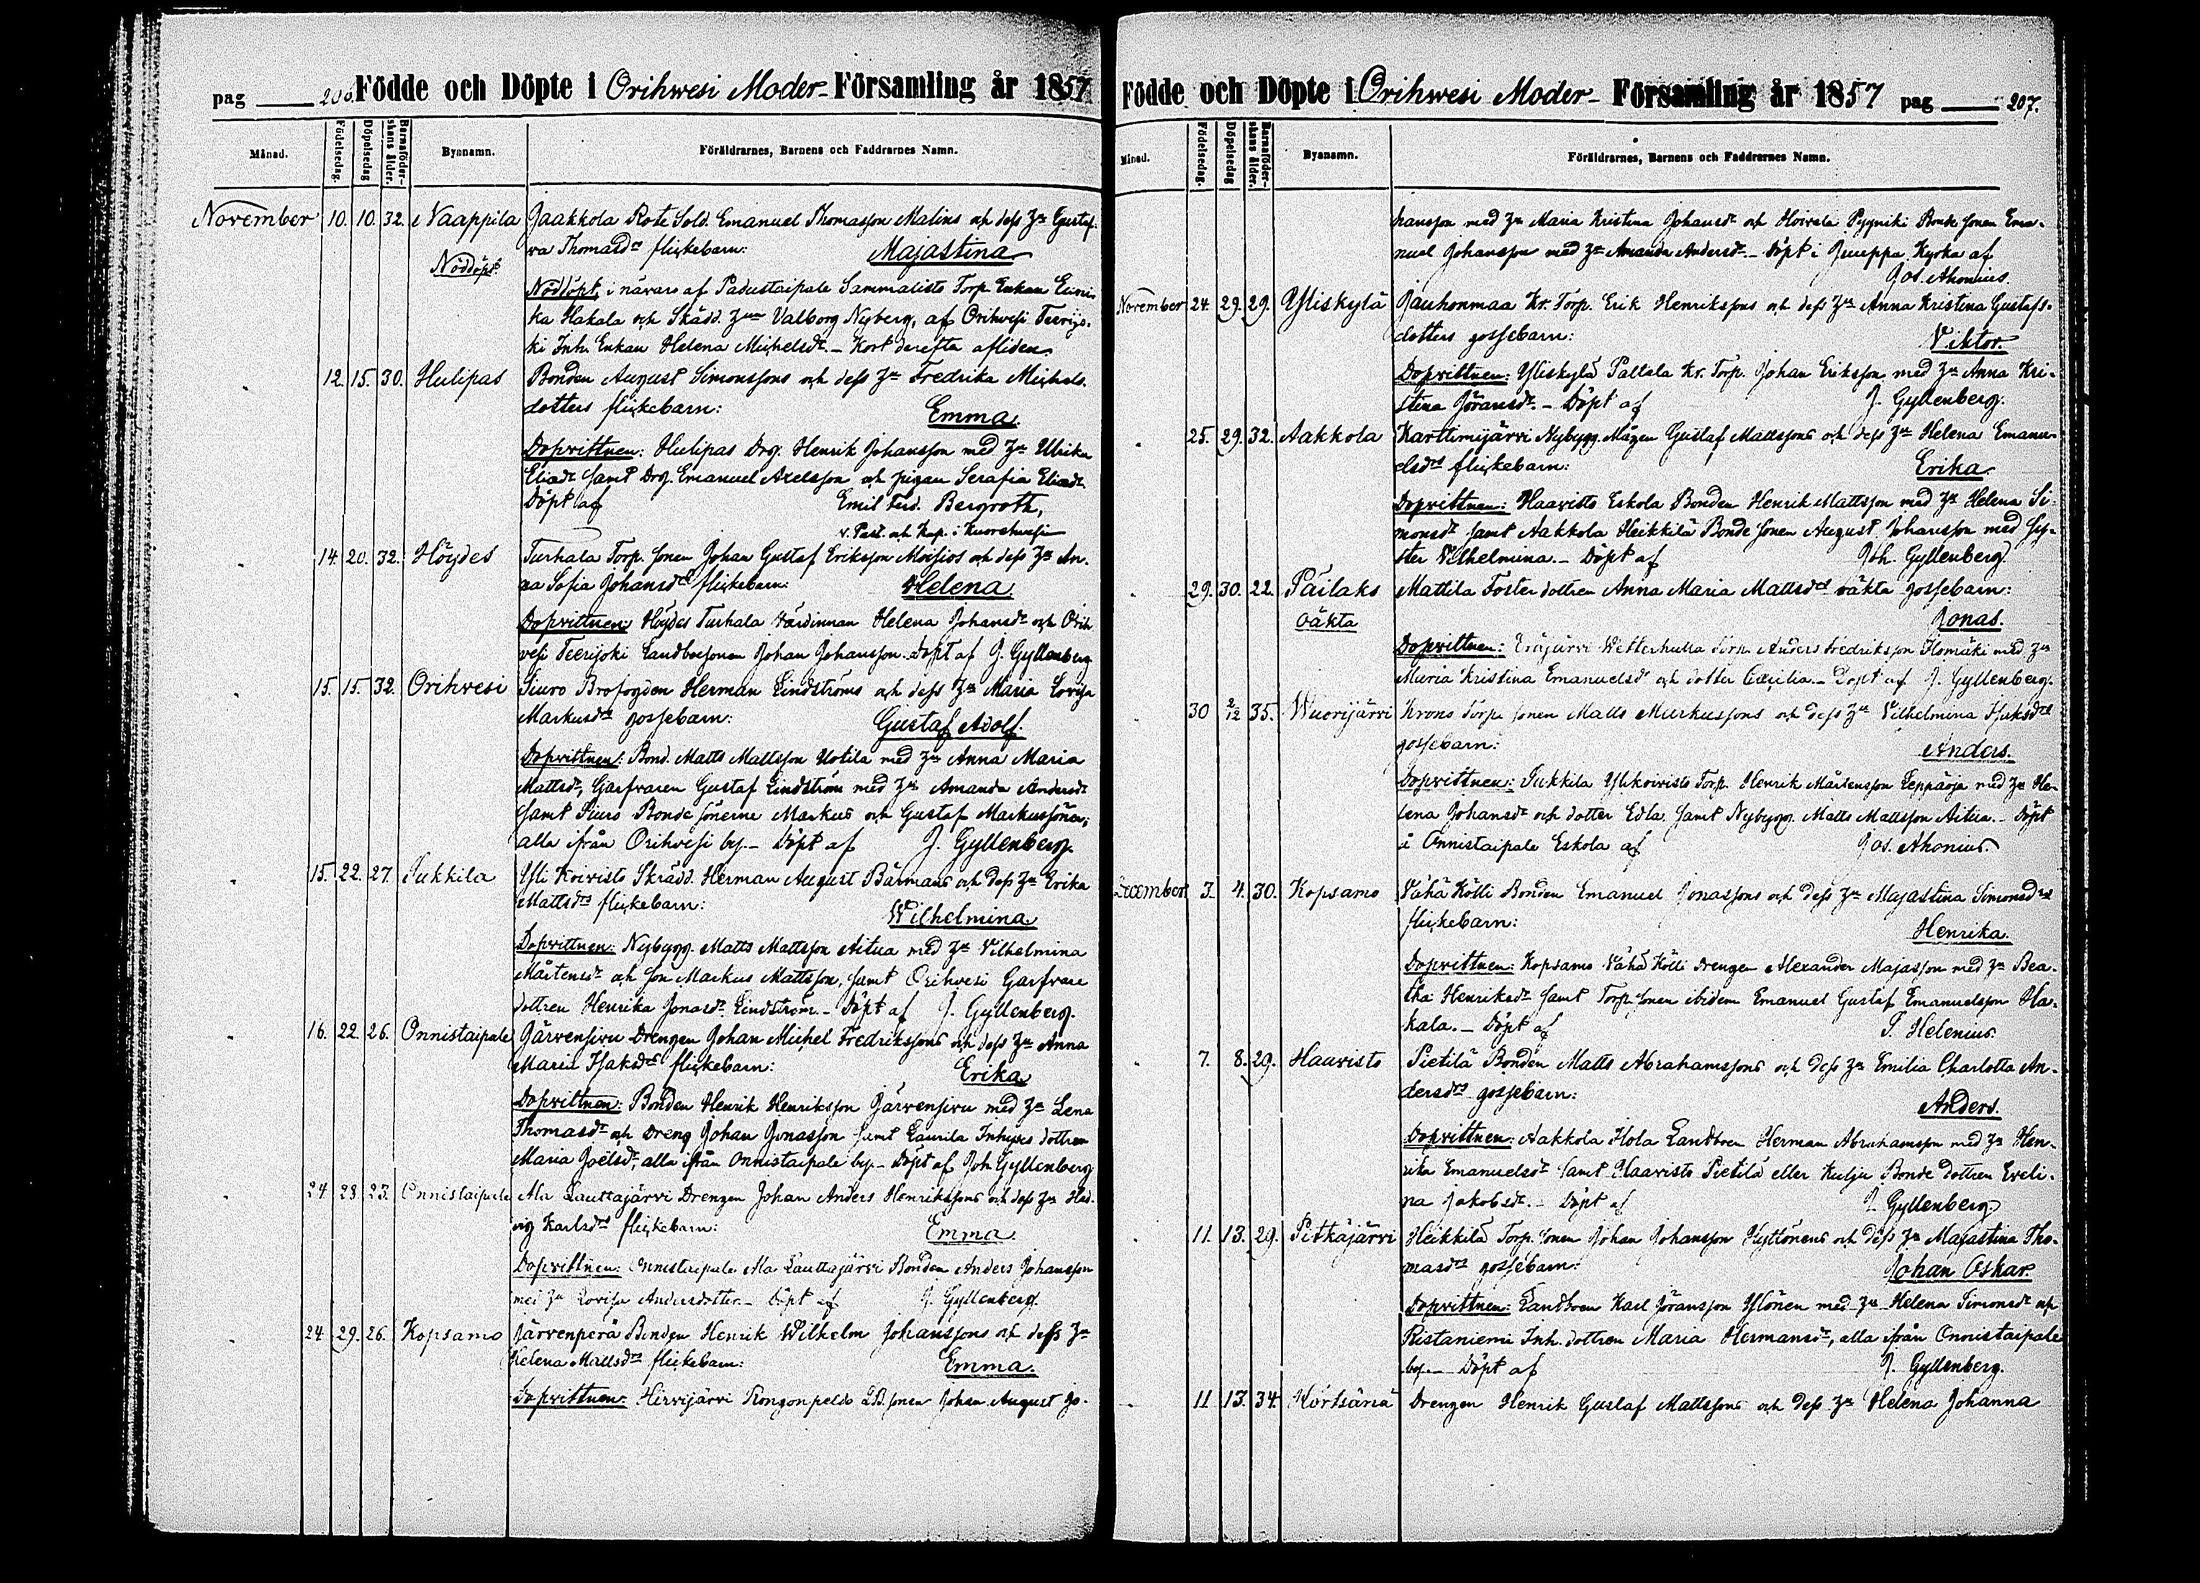 pag 206. Födde och Döpte i Orihwesi Moder- Församling år 1857
Månad. Födelsedag. Döpelsedag Barnaföderskans ålder. Bynamn. Föräldrarnes, Barnens och Faddrarnes Namn.
November 10. 10. 32. Naappila Jaakkola Rote Sold. Emanuel Thomasson Malins och dess Hu Gustaf-
va Thomasdrs flickebarn: Majastina
Nöddöpt.
Nöddöpt, i närvaro af Padustaipale Sammalisto Torp. Enkan
ka Hakala och Skädd. Valborg Nyberg, af Orihvesi Teerijo-
ki Inh. Enkan Helena Michelsdr. – Kort derefter afliden
12. 15. 30. Hulipas Bonden August Simonssons och dess Hu Fredrika Michels-
dotters flickebarn: Emma.
Dopvittnen: Hulipas Drg. Henrik Johansson med Hu Ulrika
Eliasdr samt Drg. Emanuel Axelsson och pigan Serafia Eliasdr
Döpt af Emil Ferd. Bergroth,
v. Past. och Kap. i Kuorehvesi
14. 20. 32. Höydes Turhala Torp. sonen Johan Gustaf Eriksson Moisios och dess Hu An-
na Sofia Johansdrs flickebarn: Helena.
Dopvittnen: Höydes Turhala Värdinnan Helena Johansdr och Orih-
vesi Teerijoki Landboesonen Johan Johansson. Döpt af J. Gyllenberg
15. 15. 32. Orihvesi Siuro Brofogden Herman Lindströms och dess Hu Maria Lovisa
Markusdrs gossebarn: Gustaf Adolf.
Dopvittnen: Bond. Matts Mattsson Uotila med Hu Anna Maria
Mattsdr, Garfvaren Gustaf Lindström med Hu Amanda Andersdr
samt Siuro Bonde sönerne Markus och Gustaf Markussöner,
alla ifrån Orihvesi by. – Döpt af J. Gyllenberg.
15. 22. 27. Sukkila Yli Koivisto Skrädd. Herman August Bärmans och dess Hu Erika
Mattsdrs flickebarn: Wilhelmina.
Dopvittnen: Nybygg. Matts Mattsson Aitua med Hu Vilhelmina
Mårtensdr och son Markus Mattsson, samt Orihvesi Garfvare
dottren Henrika Jonasdr Lindström. – Döpt af J. Gyllenberg.
16. 22. 26. Onnistaipale Järvensivu Drengen Johan Michel Fredrikssons och dess Hu Anna
Maria Isaksdrs flickebarn: Erika
Dopvittnen: Bonden Henrik Henriksson Järvensivu med Hu Lena
Thomasdr och Dreng Johan Jonasson samt Laurila Inhyses dottren
Maria Joelsdr, alla ifrån Onnistaipale by. – Döpt af Joh. Gyllenberg
24. 28. 23. Onnistaipale Ala Lauttajärvi Drengen Johan Anders Henrikssons och dess Hu Hed-
vig Karlsdrs flickebarn: Emma.
Dopvittnen: Onnistaipale Ala Lauttajärvi Bonden Anders Johansson
med Hu Lovisa Andersdotter. – Döpt af J. Gyllenberg.
24. 29. 26. Kopsamo Järvenperä Bonden Henrik Wilhelm Johanssons och dess Hu
Helena Mattsdrs flickebarn: Emma.
Dopvittnen: Hirvijärvi Rongonpeldo LB. sonen Johan August Jo-
Födde och Döpte i Orihwesi Moder- Församling år 1857 pag 207.
Månad. Födelsedag. Döpelsedag Barnaföderskans ålder. Bynamn. Föräldrarnes, Barnens och Faddrarnes Namn.
hansson med Hu Maria Kristina Johansdr och Hoivala Pyyniki Bonde sonen Ema-
nuel Johansson med Hu Amanda Andersdr. – Döpt i Jyueppa Kyrka af
Jos. Ahonius.
November 24. 29. 29. Yliskylä Jauhonmaa Kr. Torp. Erik Henrikssons och dess Hu Anna Kristina Gustafs-
dotters gossebarn: Viktor.
Dopvittnen: Yliskylä Paltala Kr. Torp. Johan Eriksson med Hu Anna Kri-
stina Göransdr. – Döpt af J. Gyllenberg.
25. 29. 32. Aakkola Karttimijärvi Nybygg. Mågen Gustaf Mattssons och dess Hu Helena Emanu-
elsdrs flickebarn: Erika
Dopvittnen: Haavisto Eskola Bonden Henrik Mattsson med Hu Helena Si-
monsdr samt Aakkola Heikkilä Bonde sonen August Johansson med sy-
ster Vilhelmina. – Döpt af Joh. Gyllenberg.
29. 30. 22. Päilaks Mattila Fosterdottren Anna Maria Mattsdrs oäkta gossebarn:
oäkta Jonas.
Dopvittnen: Eräjärvi Anders Fredriksson Homäki med Hu
Maria Kristina Emanuelsdr och dotter Cæcilia. – Döpt af J. Gyllenberg.
30 2/12 35. Wuorijärvi Krono Torp. sonen Matts Markussons och dess Hu Vilhelmina Isaksdrs
gossebarn: Anders.
Dopvittnen: Sukkila Ylikoivisto Torp. Henrik Mårtensson Leppäoja med Hu He-
lena Johansdr och dotter Edla, samt Nybygg. Matts Mattsson Aitua. – Döpt
i Onnistaipale Eskola af Jos. Ahonius.
December 3. 4. 30. Kopsamo Vähä Kölli Bonden Emanuel Jonassons och dess Hu Majastina Simonsdrs
flickebarn: Henrika.
Dopvittnen: Kopsamo Vähä Kölli Drengen Alexander Majasson med Hu Bea-
tha Henriksdr samt Torp. sonen ibidem Emanuel Gustaf Emanuelsson Ha-
kala. – Döpt af F. Helenius.
7. 8. 29. Haavisto Pietilä Bonden Matts Abrahamssons och dess Hu Emilia Charlotta An-
dersdrs gossebarn: Anders.
Dopvittnen: Aakkola Hola Landboen Herman Abrahamsson med Hu Hen-
rika Emanuelsdr samt Haavisto Pietilä eller Kulju Bonde dottren Eveli-
na Jakobsdr. – Döpt af J. Gyllenberg.
11. 13. 29. Pitkäjärvi Heikkilä Torp. sonen Johan Johansson Hyttönens och dess Hu Majastina Tho-
masdrs gossebarn: Johan Oskar.
Dopvittnen: Landboen Karl Göransson Ylönen med Hu Helena Simonsdr och
Ristaniemi Inh. dottren Maria Hermansdr, alla ifrån Onnistaipale
by. – Döpt af J. Gyllenberg.
11 13. 34. Drengen Henrik Gustaf Mattssons och dess Hu Helena Johanna